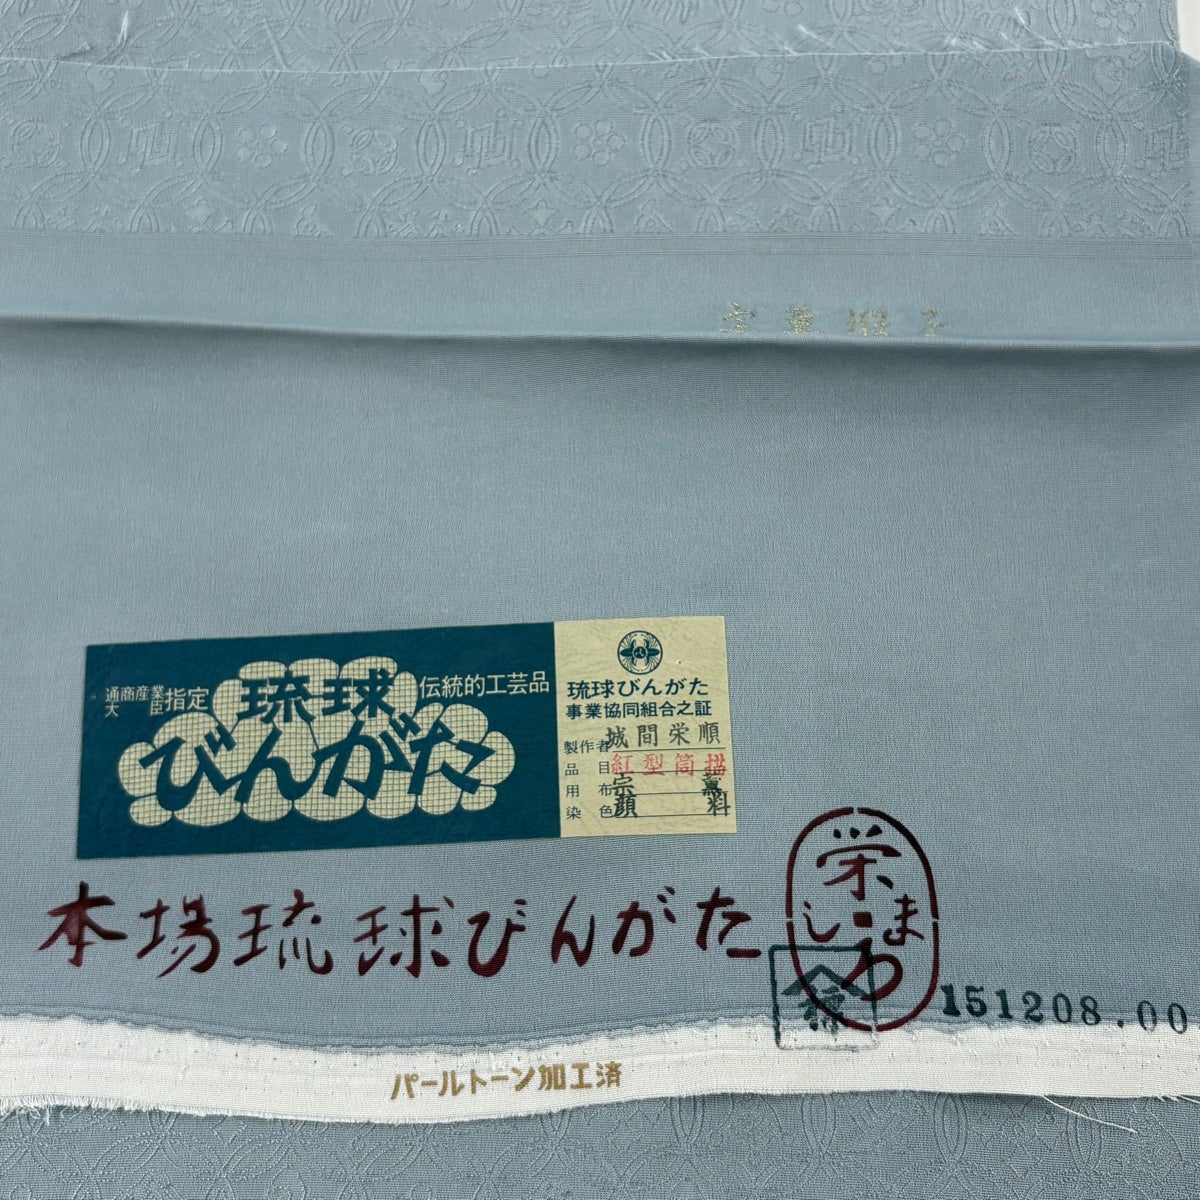 通商産業大臣指定
琉球
びんがた
伝統的工芸品
琉球びんがた
事業協同組合之証
製作者 城間栄順
品目 紅型筒描
用布 宗薫
染色 顔料
本場琉球びんがた
栄
しま
151208.00
パールトーン加工済